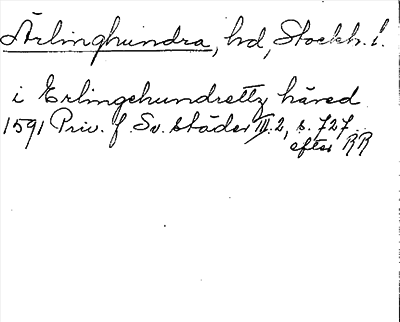 Ärlinghundra, hd, Stockh. l.
i Erlingehundrettz häred
1591 Priv. f. Sv. städer III.2, s. 727
efter RR